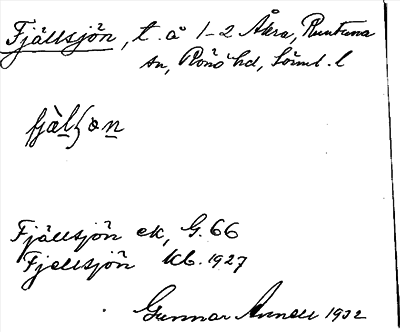 Fjällsjön, t. å 1-2 Åkra, Runtuna
sn, Rönö hd, Sörml. l
fjälʃon
Fjällsjön ek, G. 66
Fjellsjön kb. 1927
Gunnar Annell 1932